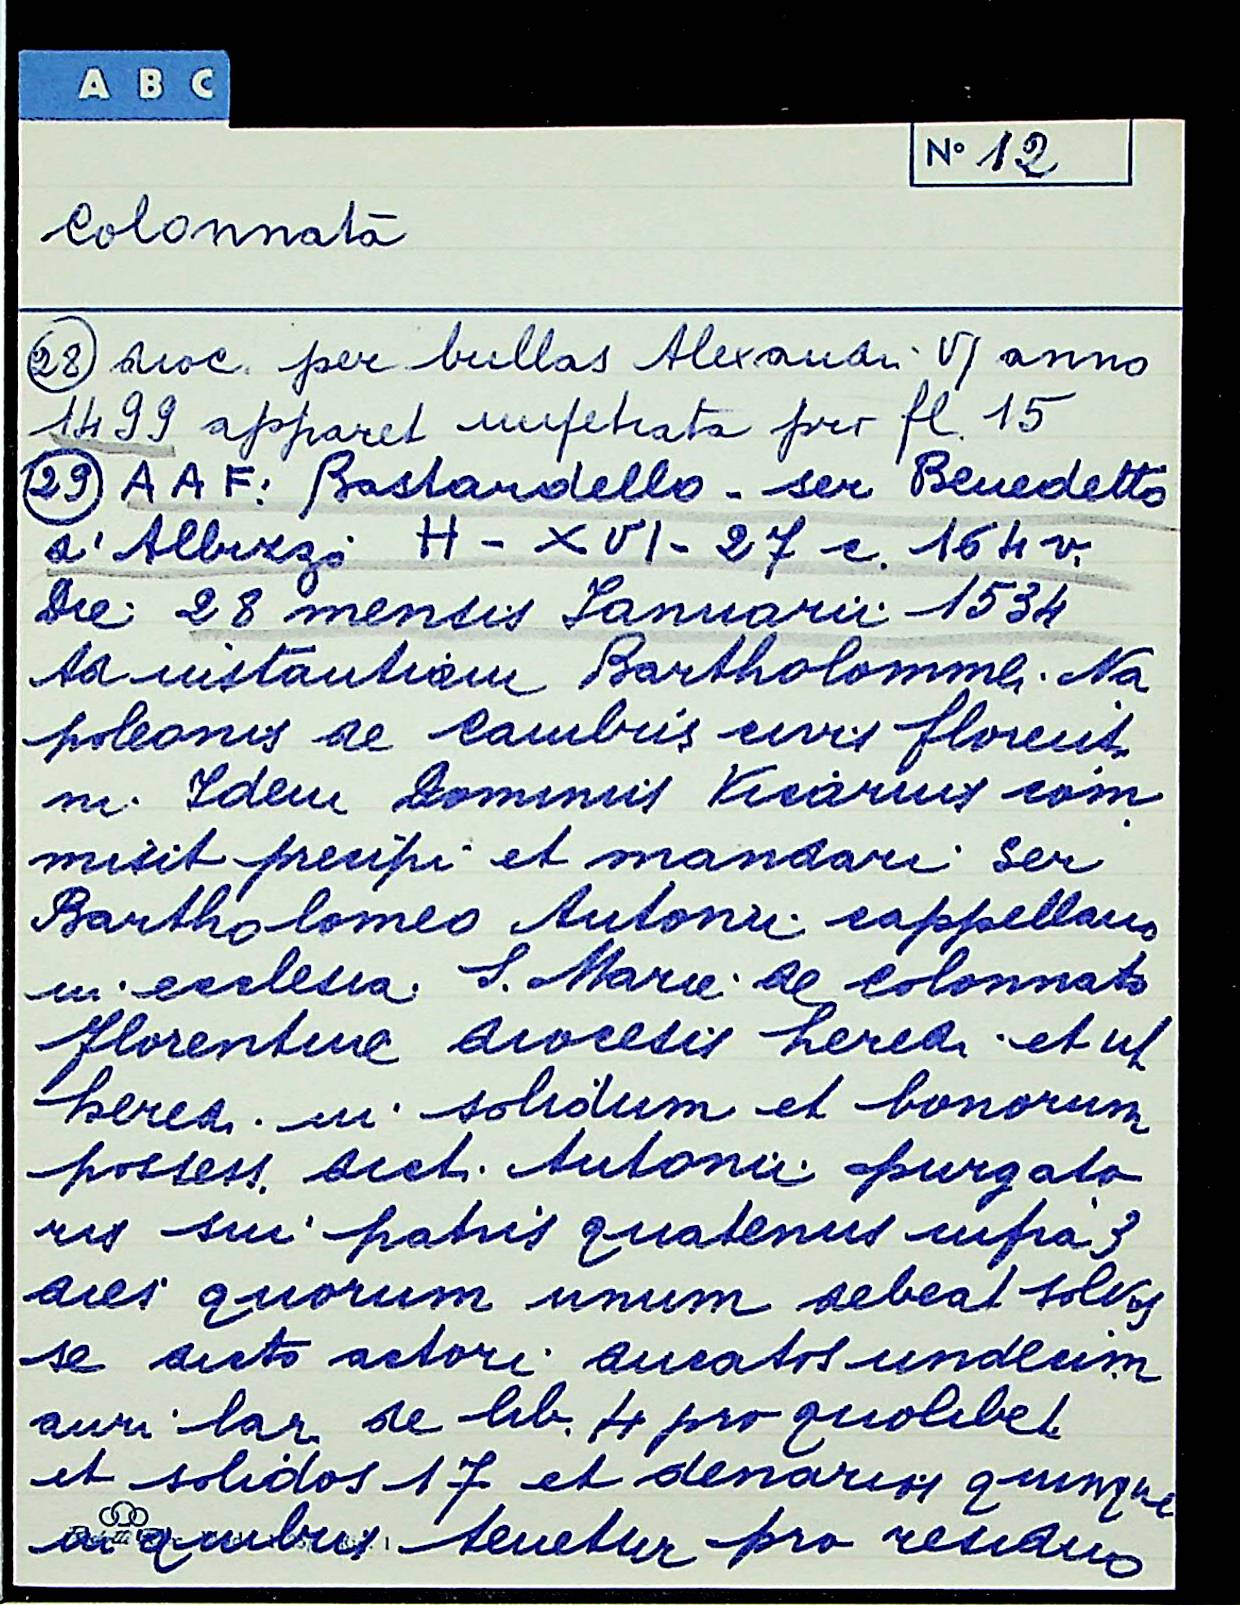 A B C
Nº 12
Colonnata
28 dioc. per bullas Alexandri VI anno
1499 apparet impetrata pro fl. 15
29 AAF: Bastardello - ser Benedetto
d'Albizzo H - XVI - 27 c. 164 v.
Die 28 mensis Ianuarii 1534
Ad instantiam Bartholommei Na
poleonis de Cambiis civis florent
ni. Idem Dominus Vicarius com
misit precipi et mandari ser
Bartholomeo Antonii cappellano
in ecclesia S. Marie de Colonnato
florentine diocesis hered. et ut
hered. in solidum et bonorum
possess. dict. Antonii purgato
ris sui patris quatenus infra 3
dies quorum unum debeat
se dicto actori ducatos undecim
auri lar. de lib. 4 pro quolibet
et solidos 17 et denarios quinque
in quibus tenetur pro residuo